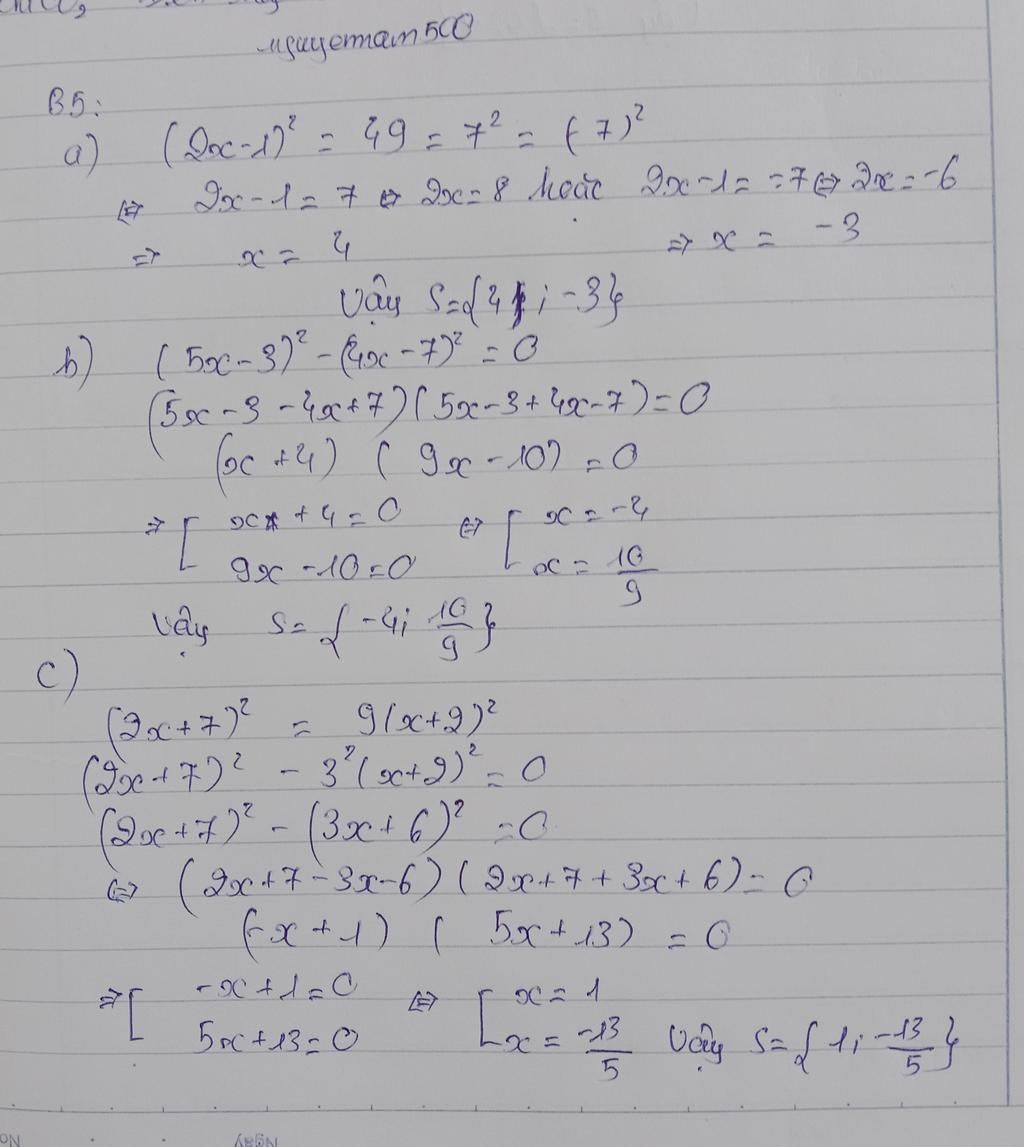 nguyetnam500
B5:
a) (2x-1)² = 49 = 7² = (-7)²
⇔ 2x-1 = 7 ⇔ 2x = 8 hoặc 2x-1 = -7 ⇔ 2x = -6
⇒ x = 4 ⇒ x = -3
Vậy S={4; -3}
b) (5x-3)² - (4x-7)² = 0
(5x-3-4x+7)(5x-3+4x-7)=0
(x+4) (9x-10) = 0
⇒ [ x+4=0 ⇔ [ x = -4
9x-10=0 x = 10/9
Vậy S= {-4; 10/9}
c)
(2x+7)² = 9(x+2)²
(2x+7)² - 3²(x+2)² = 0
(2x+7)² - (3x+6)² = 0
⇔ (2x+7-3x-6)(2x+7+3x+6) = 0
(-x+1) (5x+13) = 0
⇒ [ -x+1=0 ⇔ [ x = 1
5x+13=0 x = -13/5 Vậy S={1; -13/5}
Ngày
No